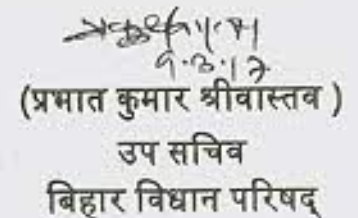 9.3.17
(प्रभात कुमार श्रीवास्तव )
उप सचिव
बिहार विधान परिषद्